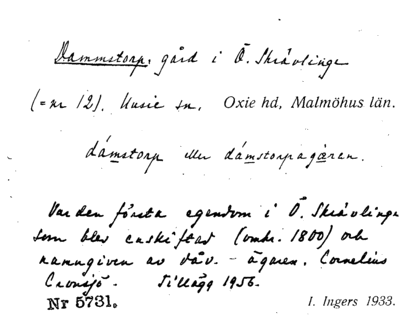 Dammstorp, gård i Ö. Skrävlinge
(= nr 12). Husie sn, Oxie hd, Malmöhus län.
dámstorp eller dámstorpagåran.
Var den första egendom i Ö. Skrävlinge
som blev enskiftad (omkr. 1800) och
namngiven av dåv. - ägaren, Cornelius
Cronsjö. Tillägg 1956.
Nr 5731.
I. Ingers 1933.